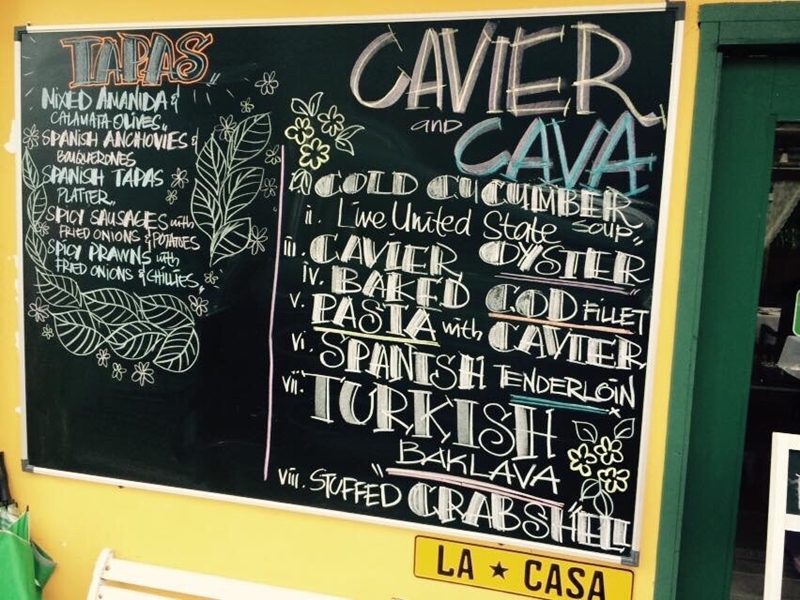 TAPAS
MIXED ANANIDA &
CALAMATA OLIVES,,
SPANISH ANCHOVIES &
BOUQUERONES
SPANISH TAPAS
PLATTER,,
SPICY SAUSAGES with
FRIED ONIONS & POTATOES
SPICY PRAWNS with
FRIED ONIONS & CHILLIES,,
CAVIER
AND
CAVA
i. COLD CUCUMBER
SOUP,,
ii. Live United State
OYSTER
iii. CAVIER
iv. BAKED COD FILLET
v. PASTA with CAVIER
vi. SPANISH TENDERLOIN
vii. TURKISH
BAKLAVA
viii. STUFFED "CRABSHELL"
LA ★ CASA